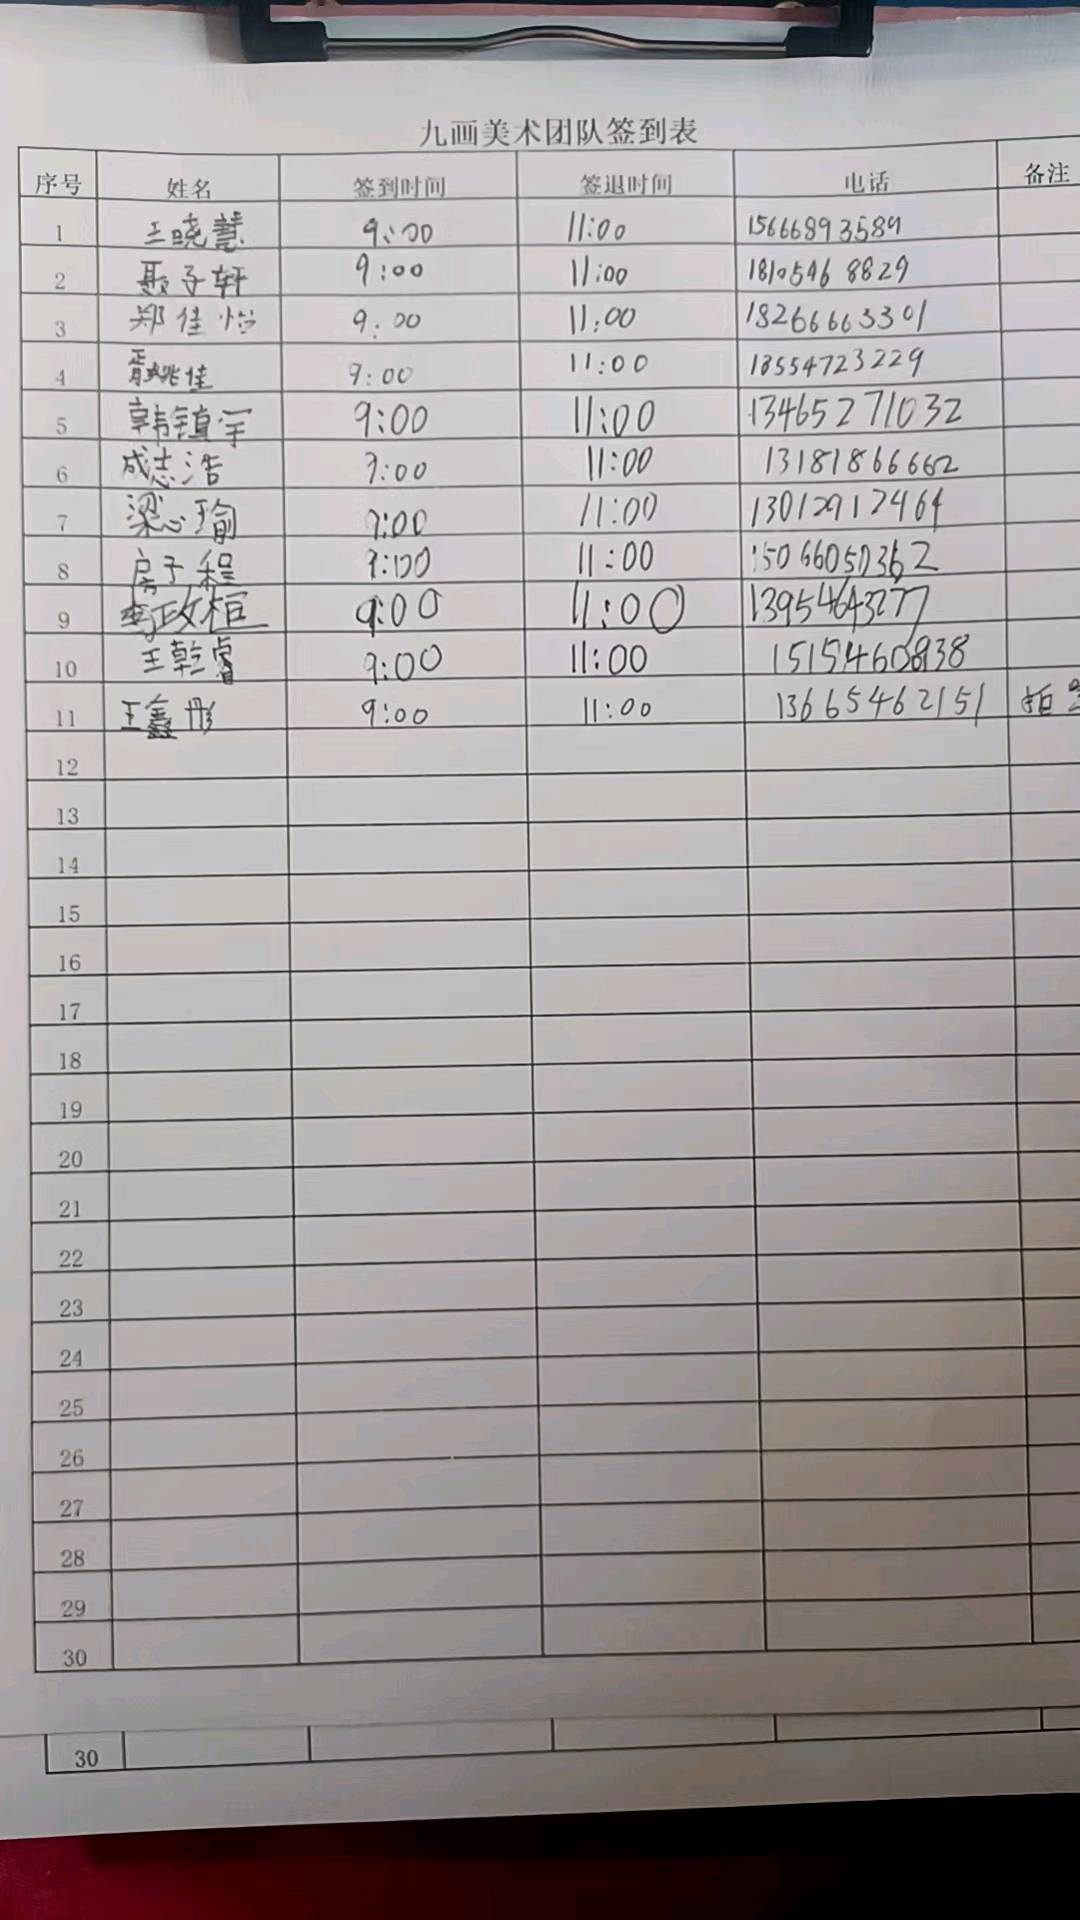 九画美术团队签到表
序号 姓名 签到时间 签退时间 电话 备注
1 王晓慧 9:00 11:00 15666893589
2 聂子轩 9:00 11:00 18105468829
3 郑佳怡 9:00 11:00 18266663301
4 9:00 11:00 13554723229
5 韩镇宇 9:00 11:00 13465271032
6 成志浩 9:00 11:00 13181866662
7 梁心瑜 9:00 11:00 13012912464
8 房子程 9:00 11:00
9 李政桓 9:00 11:00 13954643277
10 王乾睿 9:00 11:00
11 王鑫彤 9:00 11:00 13665462151 拍
12
13
14
15
16
17
18
19
20
21
22
23
24
25
26
27
28
29
30
30